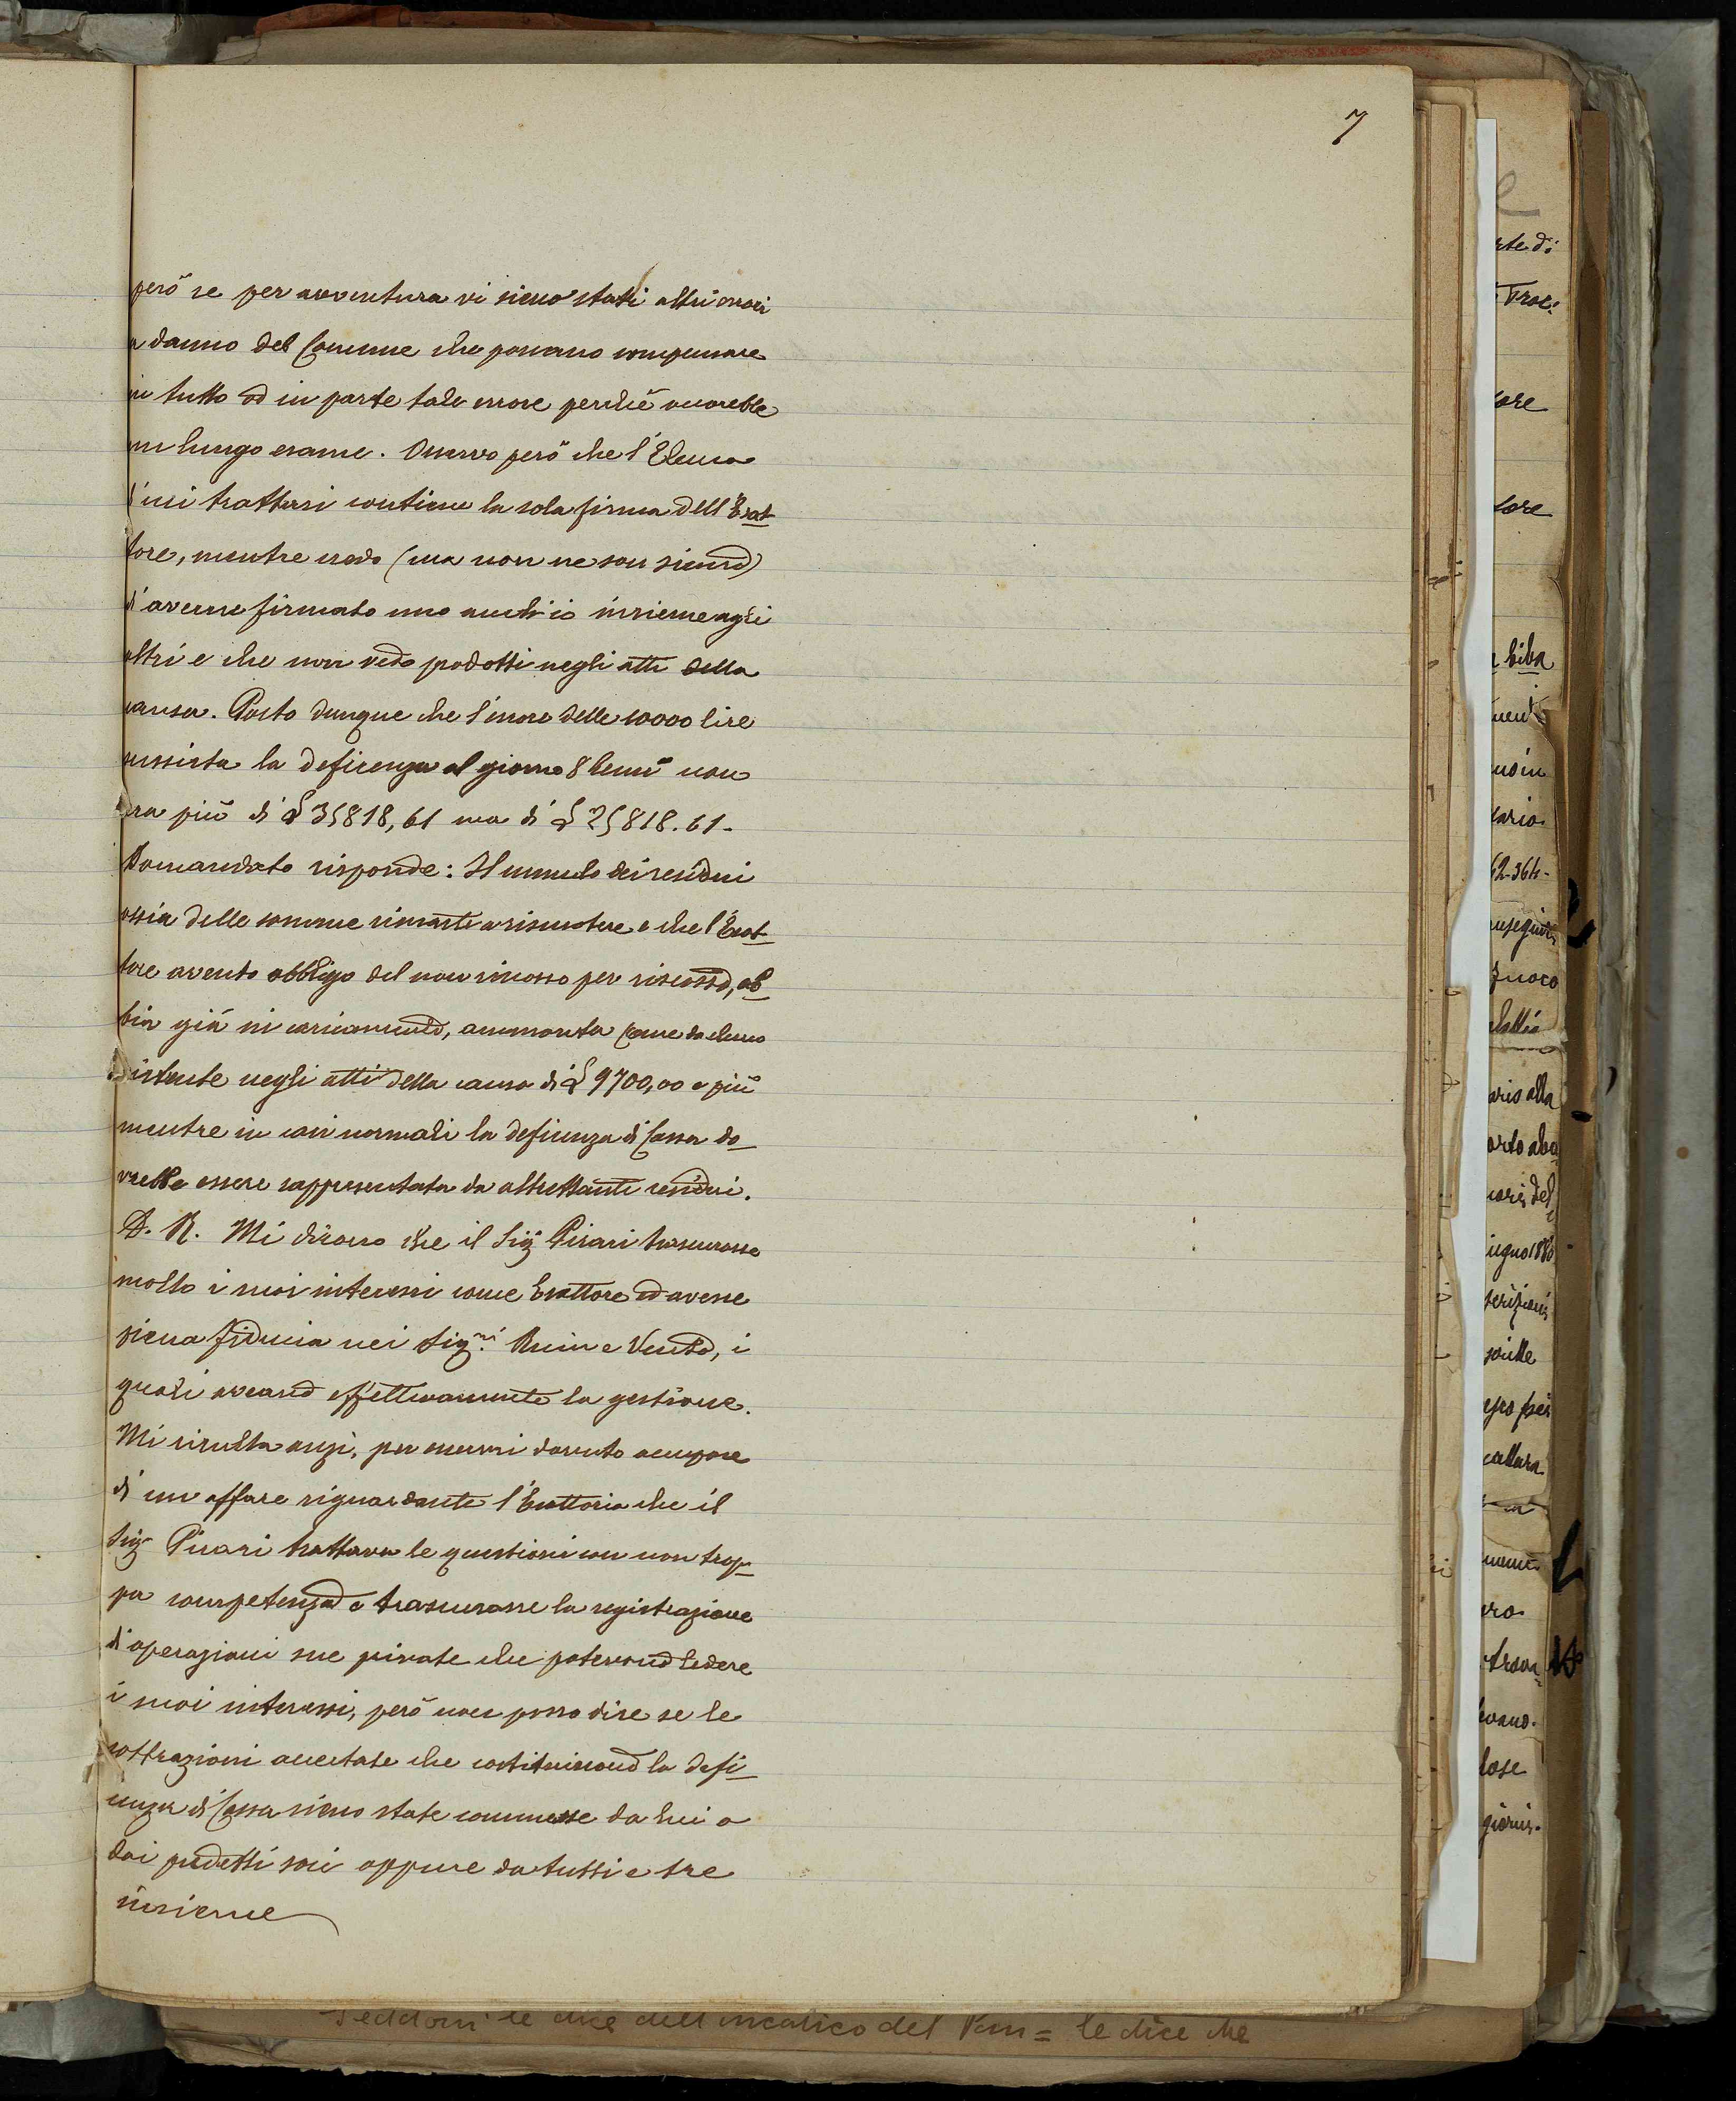 7
però se per avventura vi sieno stati altri errori
a danno del Comune che possano compensare
in tutto od in parte tale errore perchè occorrebbe
un lungo esame. Osservo però che l'Elenco
di cui trattasi contiene la sola firma dell'Esat-
tore, mentre credo (ma non ne son sicuro)
d'averne firmato uno anch'io insieme agli
altri e che non vedo prodotti negli atti della
causa. Posto dunque che l'errore delle 10000 lire
sussista la deficenza al giorno 8 non
era più di £ 35818,61 ma di £ 25818.61.
Domandato risponde: Il cumulo dei residui
ossia delle somme rimaste a riscuotere e che l'Esat-
tore avente obbligo del non riscosso per riscosso, ab-
bia già in caricamento, ammonta come da elenco
esistente negli atti della causa di £ 9700,00 e più
mentre in casi normali la deficienza di Cassa do-
vrebbe essere rappresentata da altrettanti residui.
D. R. Mi dissero che il Sigr Pirari trascurasse
molto i suoi interessi come Esattore ed avesse
piena fiducia nei Sigri. e Vento, i
quali aveano effettivamente la gestione.
Mi risulta anzi, per essermi dovuto occupare
di un affare riguardante l'Esattoria che il
Sigr Pirari trattava le questioni con non trop-
pa competenza e trascurasse la registrazione
di operazioni sue private che potevano ledere
i suoi interessi, però non posso dire se le
sottrazioni accertate che costituiscono la defi-
cenza di Cassa sieno state commesse da lui o
dai predetti soci oppure da tutti e tre
insieme
le dice dell'incarico del = le dice che